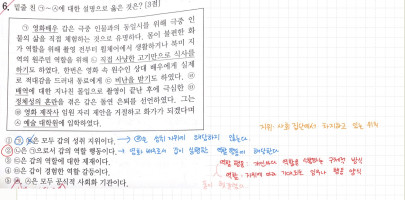 6. 밑줄 친 ㉠~㉥에 대한 설명으로 옳은 것은? [3점]
㉠ 영화배우 갑은 극중 인물과의 동일시를 위해 극중 인
물의 삶을 직접 체험하는 것으로 유명하다. 몸이 불편한 화
가 역할을 위해 촬영 전부터 휠체어에서 생활하거나 북미 지
역의 원주민 역할을 위해 ㉡ 직접 사냥한 고기만으로 식사를
하기도 하였다. 한번은 영화 속 원수인 상대 배우에게 실제
로 적대감을 드러내 동료에게 ㉢ 비난을 받기도 하였다. ㉣
배역에 대한 지나친 몰입으로 촬영이 끝난 후에 극심한
정체성의 혼란을 겪은 갑은 돌연 은퇴를 선언하였다. 그는
영화 제작사 임원 자리 제안을 거절하고 화가가 되겠다며
예술 대학원에 입학하였다.
지위: 사회 집단에서 차지하고 있는 위치
① 은 모두 갑의 성취 지위이다. → 은 성취 지위에 해당하지 않는다.
② ㉡은 ㉠으로서 갑의 역할 행동이다. → 영화배우로서 갑이 실행한 역할 행동에 해당한다.
③ ㉢은 갑의 역할에 대한 제재이다.
역할 행동: 개인마다 역할을 수행하는 구체적 방식
④ 은 갑이 경험한 역할 갈등이다.
역할: 지위에 따라 기대되는 행동 방식
⑤ 은 모두 공식적 사회화 기관이다.